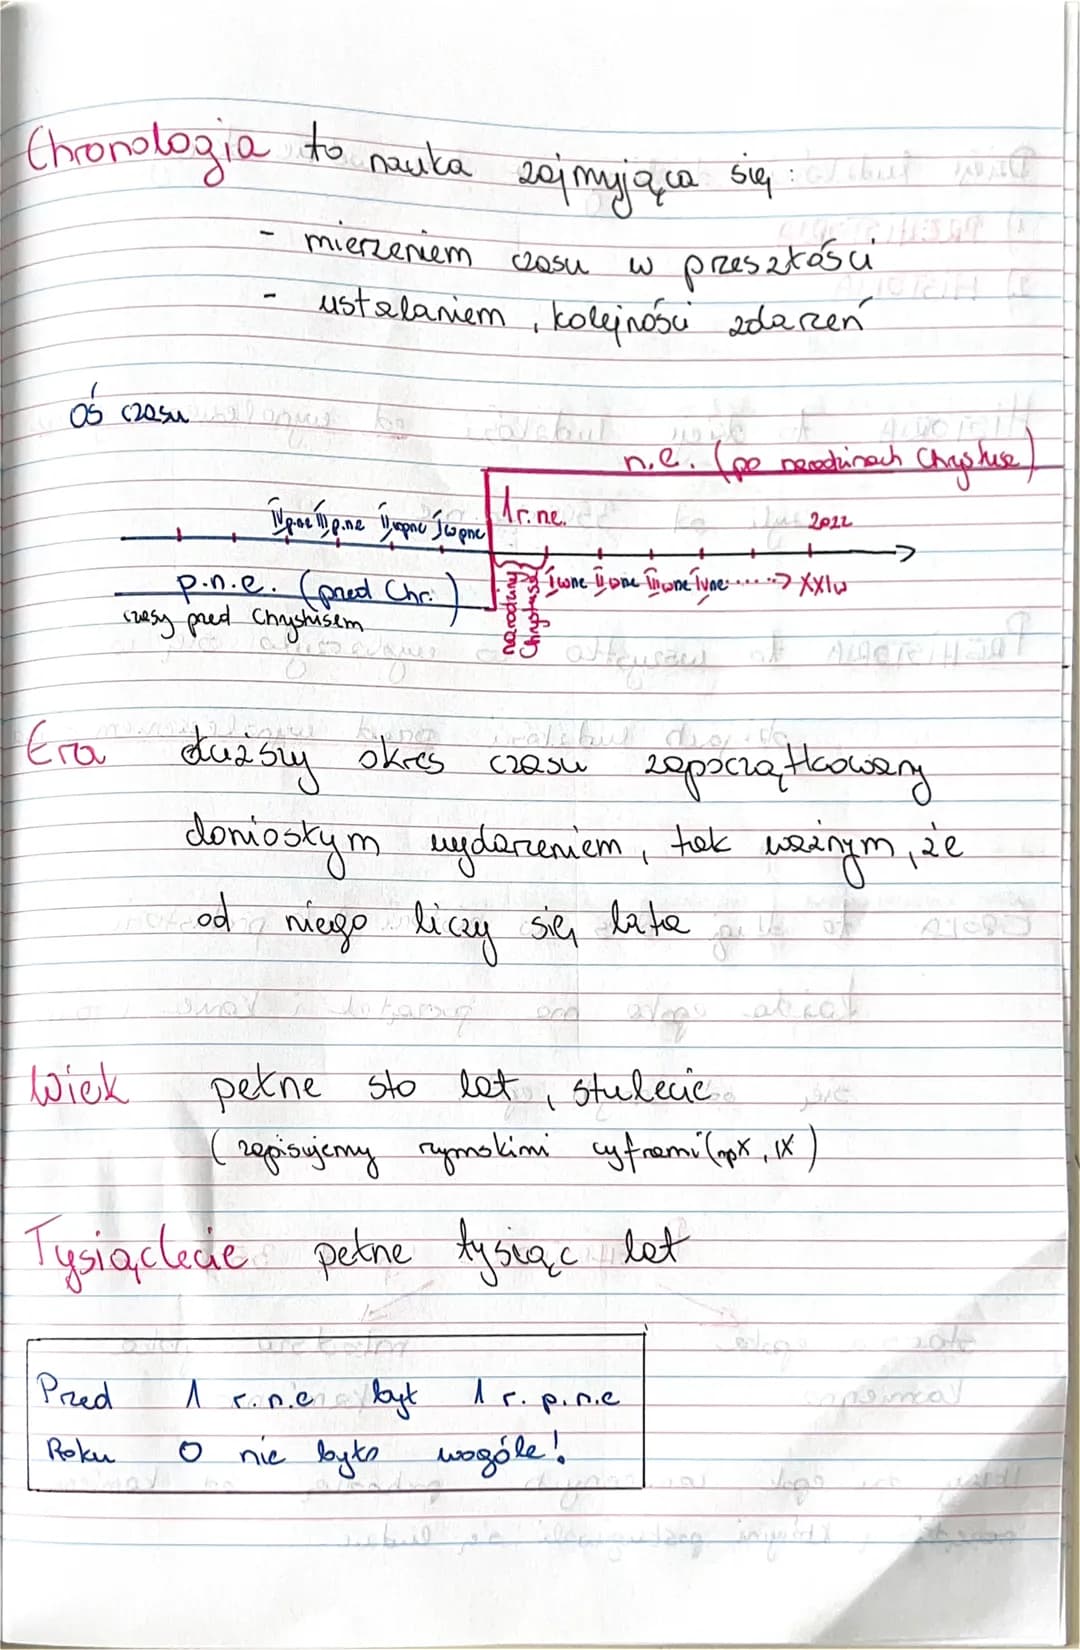 Chronologia to nauka zajmująca się:
- mierzeniem czasu w przeszłości
- ustalaniem, kolejności zdarzeń
Oś czasu
n.e. (po narodzinach Chrystusa)
1 r. n.e.
2022
IV p.ne III p.ne II w pne I w pne
p.n.e. (przed Chr.)
I w ne II w ne III w ne IV ne .....-> XXI w
czasy przed Chrystusem
narodziny
Chrystusa
Era dłuższy okres czasu zapoczątkowany
doniosłym wydarzeniem, tak ważnym, że
od niego liczy się lata
Wiek pełne sto lat, stulecie
(zapisujemy rzymskimi cyframi (np X, IX)
Tysiąclecie pełne tysiąc lat
Przed 1 r.n.e był 1 r. p.n.e
Roku 0 nie było wogóle!